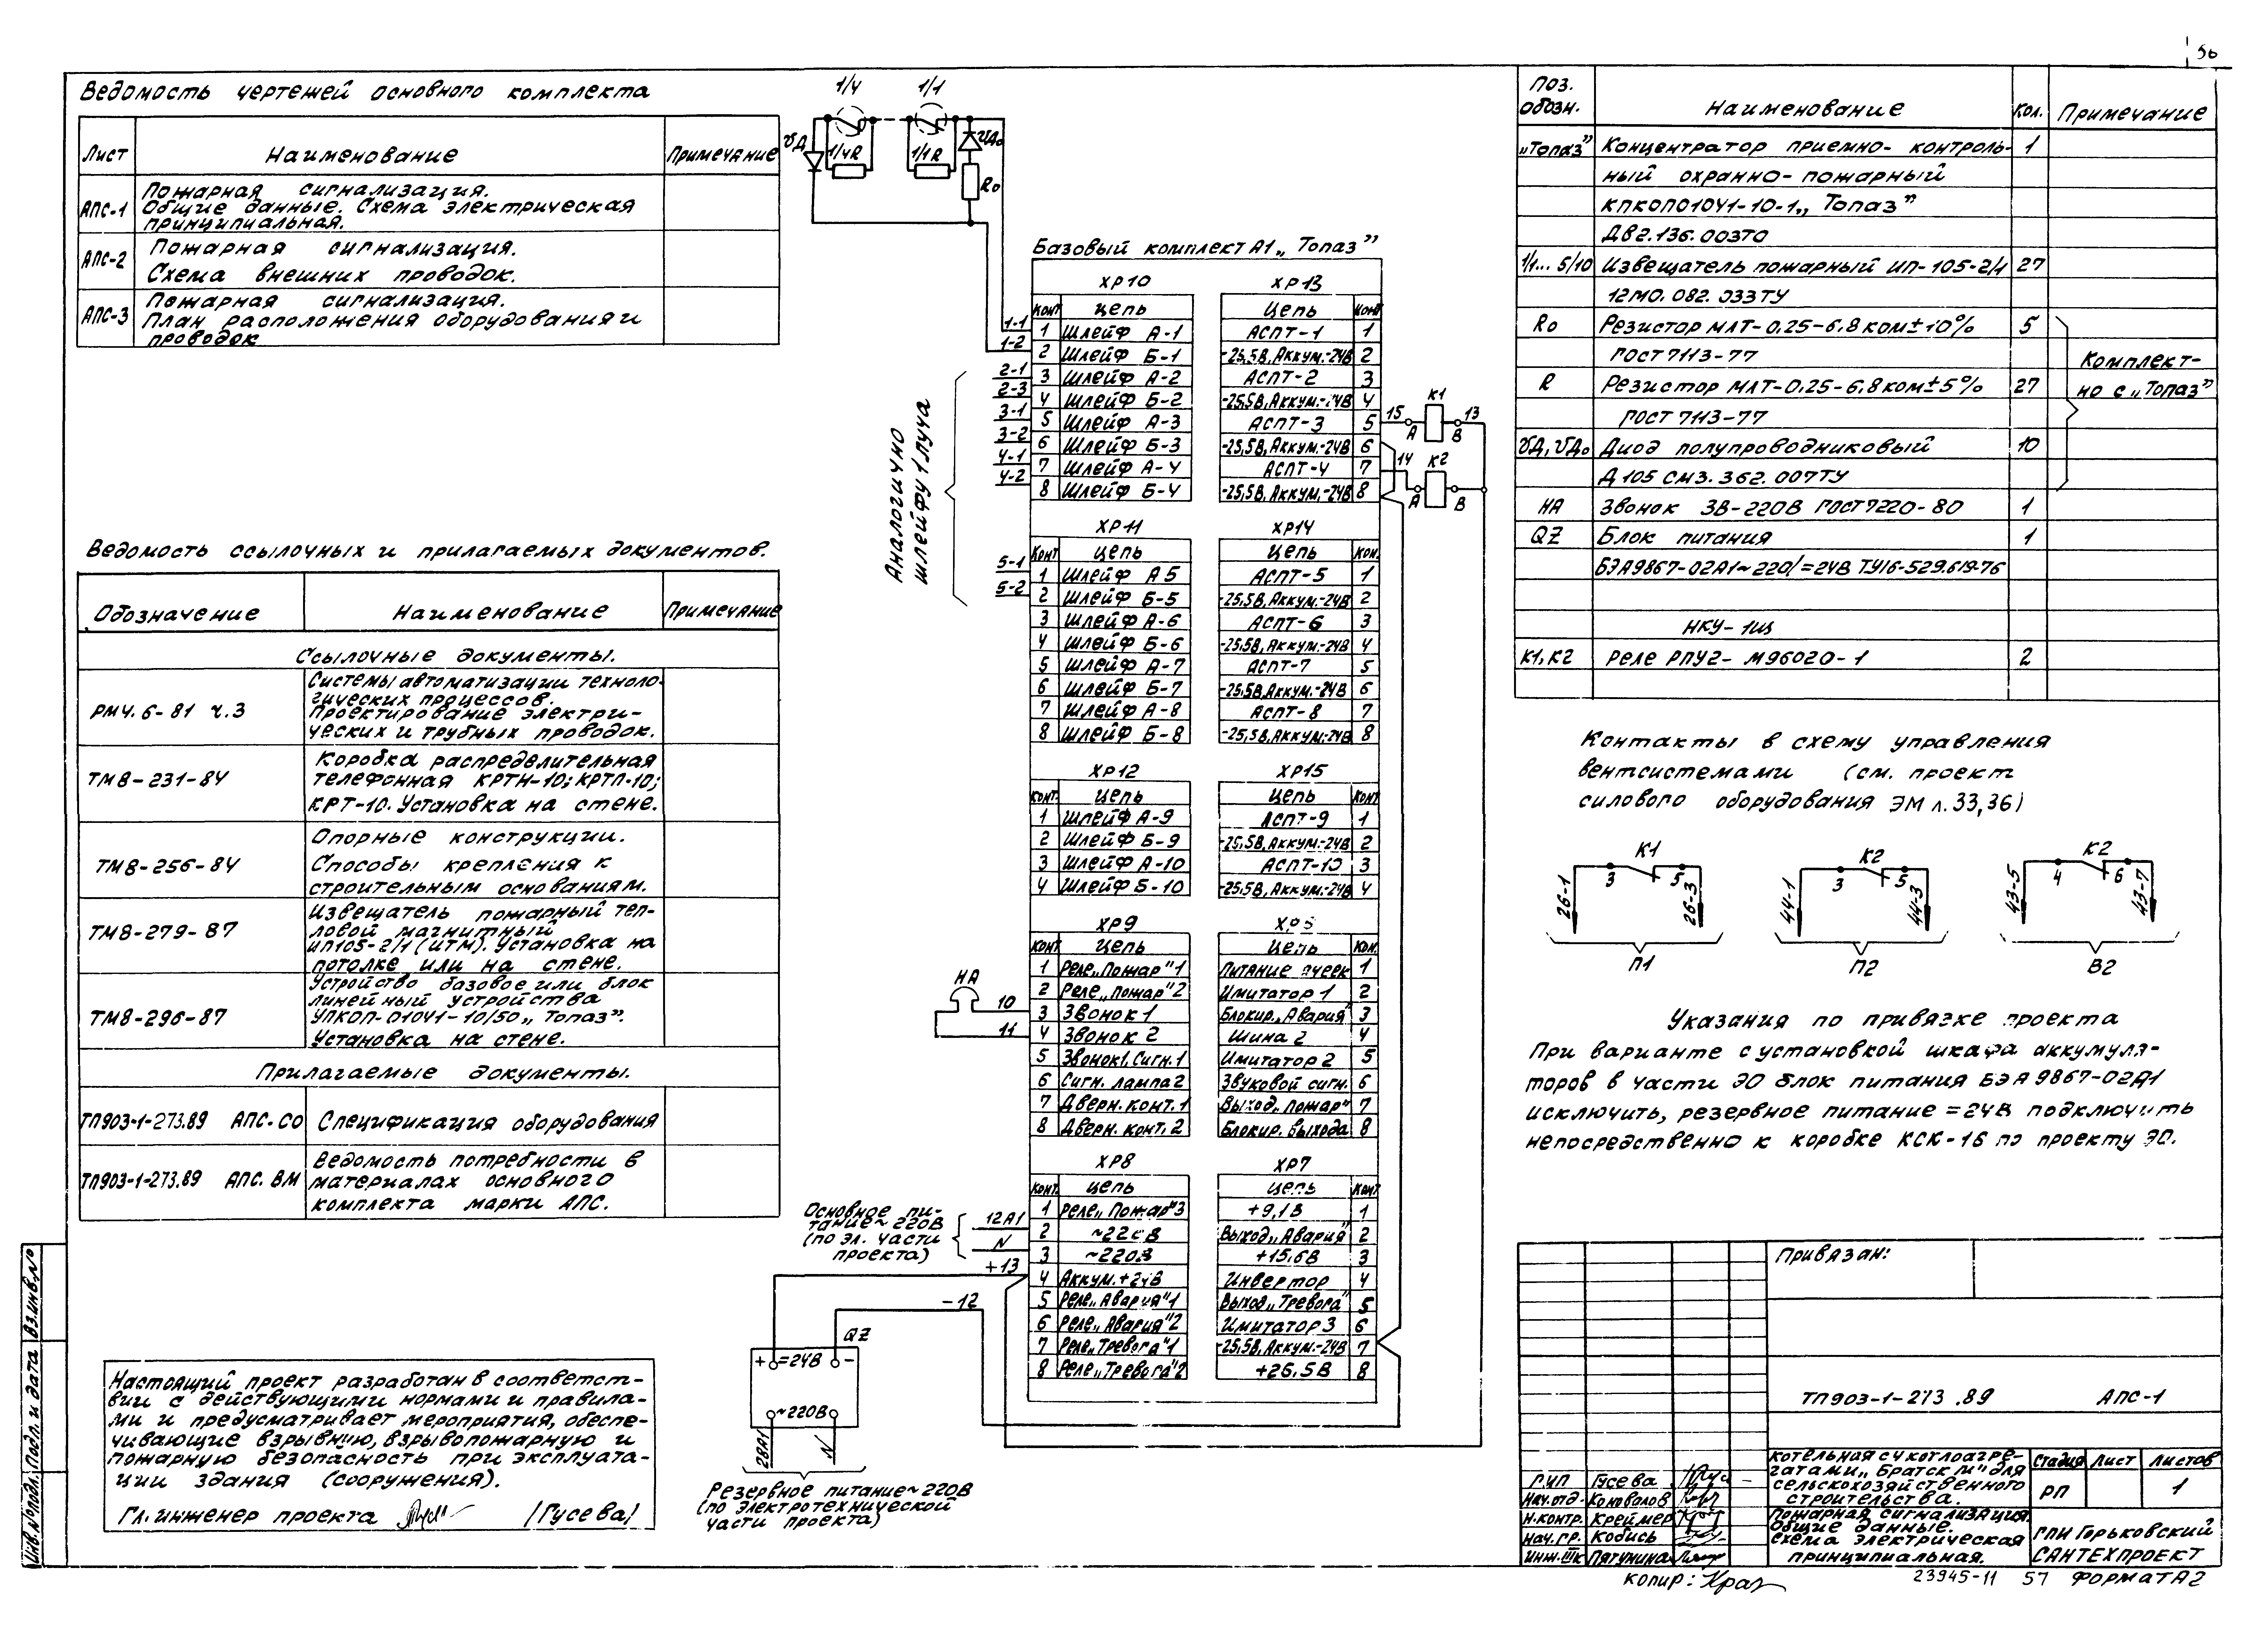 56
Ведомость чертежей основного комплекта
Лист Наименование Примечание
АПС-1 Пожарная сигнализация.
Общие данные. Схема электрическая
принципиальная.
АПС-2 Пожарная сигнализация.
Схема внешних проводок.
АПС-3 Пожарная сигнализация.
План расположения оборудования и
проводок
Ведомость ссылочных и прилагаемых документов.
Обозначение Наименование Примечание
Ссылочные документы.
РМ4.6-81 ч.3 Системы автоматизации техноло-
гических процессов.
Проектирование электри-
ческих и трубных проводок.
ТМ8-231-84 Коробка распределительная
телефонная КРТН-10; КРТП-10;
КРТ-10. Установка на стене.
ТМ8-256-84 Опорные конструкции.
Способы крепления к
строительным основаниям.
ТМ8-279-87 Извещатель пожарный теп-
ловой магнитный
ИП105-2/1 (ИТМ). Установка на
потолке или на стене.
ТМ8-296-87 Устройство базовое или блок
линейный устройства
УПКОП-01041-10/50 „Топаз".
Установка на стене.
Прилагаемые документы.
ТП903-1-273.89 АПС.СО Спецификация оборудования
ТП903-1-273.89 АПС.ВМ Ведомость потребности в
материалах основного
комплекта марки АПС.
Настоящий проект разработан в соответст-
вии с действующими нормами и правила-
ми и предусматривает мероприятия, обеспе-
чивающие взрывную, взрывопожарную и
пожарную безопасность при эксплуата-
ции здания (сооружения).
Гл. инженер проекта /Гусева/
Инв.№подл. Подп. и дата Вз.инв.№
1/4 1/1
VД 1/4R 1/1R VДо
Rо
Базовый комплект А1 „Топаз"
ХР10 ХР13
Конт Цепь Цепь Конт
1-1 1 Шлейф А-1 АСПТ-1 1
1-2 2 Шлейф Б-1 -25,5В, Аккум.-24В 2
2-1 3 Шлейф А-2 АСПТ-2 3
2-3 4 Шлейф Б-2 -25,5В, Аккум.-24В 4
3-1 5 Шлейф А-3 АСПТ-3 5 15 А К1 В 13
3-2 6 Шлейф Б-3 -25,5В, Аккум.-24В 6
4-1 7 Шлейф А-4 АСПТ-4 7 14 А К2 В
4-2 8 Шлейф Б-4 -25,5В, Аккум.-24В 8
Аналогично
шлейфу 1 луча
ХР11 ХР14
Конт Цепь Цепь Кон.
5-1 1 Шлейф А5 АСПТ-5 1
5-2 2 Шлейф Б-5 -25,5В, Аккум.-24В 2
3 Шлейф А-6 АСПТ-6 3
4 Шлейф Б-6 -25,5В, Аккум.-24В 4
5 Шлейф А-7 АСПТ-7 5
6 Шлейф Б-7 -25,5В, Аккум.-24В 6
7 Шлейф А-8 АСПТ-8 7
8 Шлейф Б-8 -25,5В, Аккум.-24В 8
ХР12 ХР15
Конт. Цепь Цепь Конт
1 Шлейф А-9 АСПТ-9 1
2 Шлейф Б-9 -25,5В, Аккум.-24В 2
3 Шлейф А-10 АСПТ-10 3
4 Шлейф Б-10 -25,5В, Аккум.-24В 4
ХР9
Конт Цепь Цепь Кон.
1 Реле „Пожар"1 Питание ячеек 1
2 Реле „Пожар"2 Имитатор 1 2
НА 10 3 Звонок 1 Блокир. „Авария" 3
11 4 Звонок 2 Шина 2 4
5 Звонок1. Сигн.1 Имитатор 2 5
6 Сигн. лампа 2 Звуковой сигн. 6
7 Дверн. конт. 1 Выход „Пожар" 7
8 Дверн. конт. 2 Блокир. выхода 8
ХР8 ХР7
Конт. Цепь Цепь Конт
1 Реле „Пожар"3 +9,1В 1
12А1 2 ~220В Выход „Авария" 2
N 3 ~220В +15.6В 3
+13 4 Аккум.+24В Инвертор 4
5 Реле „Авария"1 Выход „Тревога" 5
6 Реле „Авария"2 Имитатор 3 6
7 Реле „Тревога"1 -25,5В, Аккум.-24В 7
8 Реле „Тревога"2 +26.5В 8
Основное пи-
тание ~220В
(по эл. части
проекта)
-12
QZ
+ =24В -
~220В
28А1 N
Резервное питание ~220В
(по электротехнической
части проекта)
Поз. обозн. Наименование Кол. Примечание
„Топаз" Концентратор приемно-контроль- 1
ный охранно-пожарный
КПКОП01041-10-1 „Топаз"
ДВ2.136.003ТО
1/1... 5/10 Извещатель пожарный ИП-105-2/1 27
12МО.082.033ТУ
Rо Резистор МЛТ-0,25-6,8 ком±10% 5
ГОСТ 7113-77
R Резистор МЛТ-0,25-6,8 ком±5% 27
ГОСТ 7113-77
Комплект-
но с „Топаз"
VД, VДо Диод полупроводниковый 10
Д105 СМ3.362.007ТУ
НА Звонок ЗВ-220В ГОСТ 7220-80 1
QZ Блок питания 1
БЭА9867-02А1~220/=24В ТУ16-529.619-76
НКУ-1Щ
К1, К2 Реле РПУ2-М96020-1 2
Контакты в схему управления
вентсистемами (см. проект
силового оборудования ЭМ л. 33,36)
К1 К2 К2
3 5 3 5 4 6
26-1 26-3 44-1 44-3 43-5 43-7
П1 П2 В2
Указания по привязке проекта
При варианте с установкой шкафа аккумуля-
торов в части ЭО блок питания БЭА9867-02А1
исключить, резервное питание =24В подключить
непосредственно к коробке КСК-16 по проекту ЭО.
Привязан:
ТП903-1-273.89 АПС-1
ГИП Гусева
Нач.отд. Коновалов
Н.контр. Креймер
Нач. гр. Кодись
Инж. IIIк Пятунина
Котельная с 4 котлоагре-
гатами „Братск М" для
сельскохозяйственного
строительства.
Стадия Лист Листов
РП 1
Пожарная сигнализация.
Общие данные.
Схема электрическая
принципиальная.
ГПИ Горьковский
САНТЕХПРОЕКТ
Копир:
23945-11 57 Формат А2